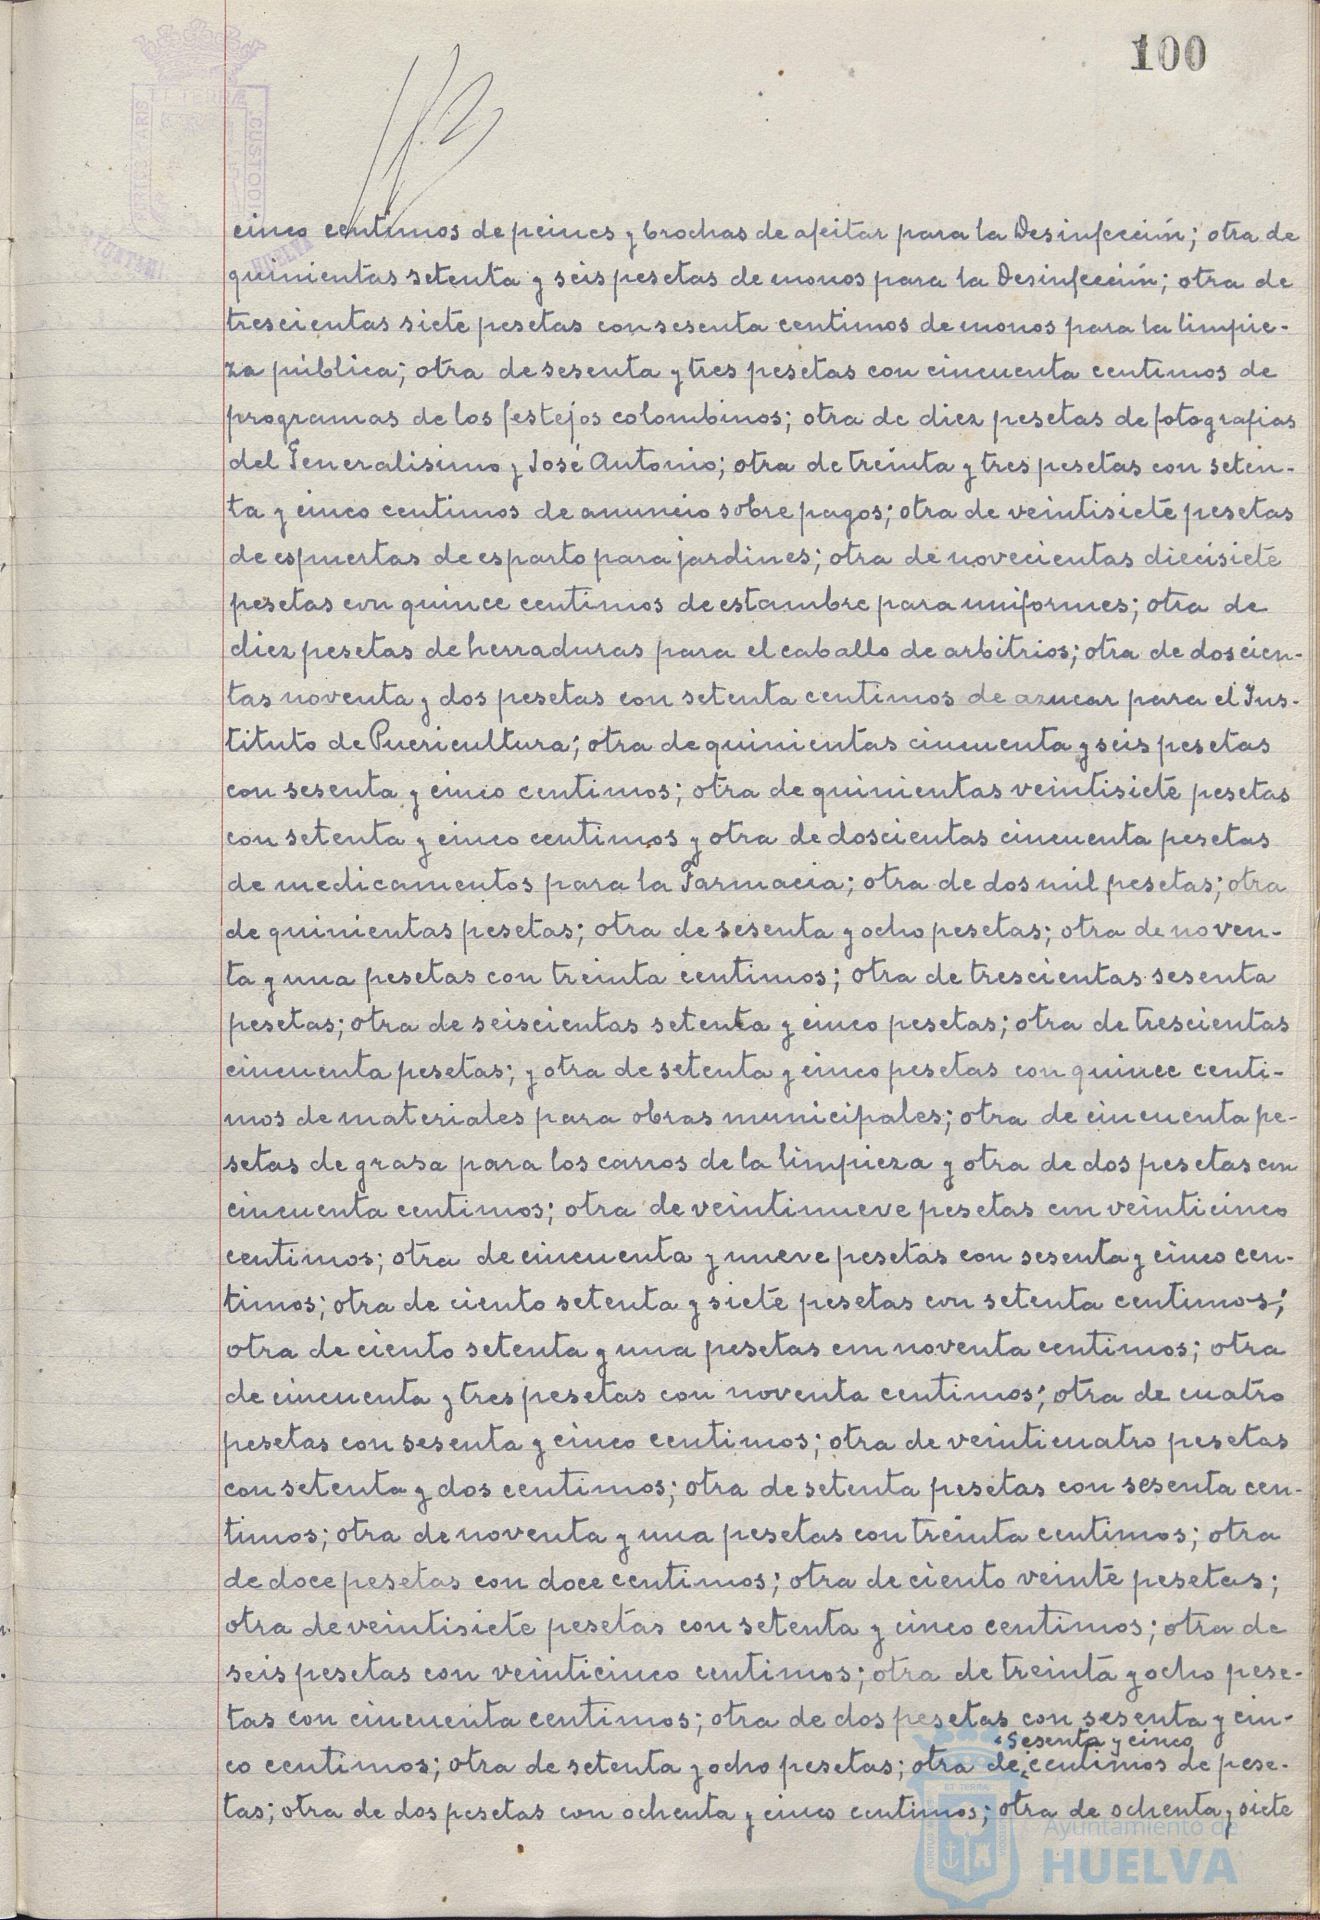 100
PORTUS MARIS
ET TERRAE
CUSTODIA
HUELVA
cinco centimos de peines y brochas de afeitar para la Desinfección; otra de
quinientas setenta y seis pesetas de monos para la Desinfección; otra de
trescientas siete pesetas con sesenta centimos de monos para la limpie-
za pública; otra de sesenta y tres pesetas con cincuenta centimos de
programas de los festejos colombinos; otra de diez pesetas de fotografias
del Generalisimo y José Antonio; otra de treinta y tres pesetas con seten-
ta y cinco centimos de anuncio sobre pagos; otra de veintisiete pesetas
de espuertas de esparto para jardines; otra de novecientas diecisiete
pesetas con quince centimos de estambre para uniformes; otra de
diez pesetas de herraduras para el caballo de arbitrios; otra de doscien-
tas noventa y dos pesetas con setenta centimos de azucar para el Ins-
tituto de Puericultura; otra de quinientas cincuenta y seis pesetas
con sesenta y cinco centimos; otra de quinientas veintisiete pesetas
con setenta y cinco centimos y otra de doscientas cincuenta pesetas
de medicamentos para la Farmacia; otra de dos mil pesetas; otra
de quinientas pesetas; otra de sesenta y ocho pesetas; otra de noven-
ta y una pesetas con treinta centimos; otra de trescientas sesenta
pesetas; otra de seiscientas setenta y cinco pesetas; otra de trescientas
cincuenta pesetas; y otra de setenta y cinco pesetas con quince centi-
mos de materiales para obras municipales; otra de cincuenta pe-
setas de grasa para los carros de la limpieza y otra de dos pesetas con
cincuenta centimos; otra de veintinueve pesetas con veinticinco
centimos; otra de cincuenta y nueve pesetas con sesenta y cinco cen-
timos; otra de ciento setenta y siete pesetas con setenta centimos;
otra de ciento setenta y una pesetas con noventa centimos; otra
de cincuenta y tres pesetas con noventa centimos; otra de cuatro
pesetas con sesenta y cinco centimos; otra de veinticuatro pesetas
con setenta y dos centimos; otra de setenta pesetas con sesenta cen-
timos; otra de noventa y una pesetas con treinta centimos; otra
de doce pesetas con doce centimos; otra de ciento veinte pesetas;
otra de veintisiete pesetas con setenta y cinco centimos; otra de
seis pesetas con veinticinco centimos; otra de treinta y ocho pese-
tas con cincuenta centimos; otra de dos pesetas con sesenta y cin-
sesenta y cinco
co centimos; otra de setenta y ocho pesetas; otra de centimos de pese-
tas; otra de dos pesetas con ochenta y cinco centimos; otra de ochenta y siete
Ayuntamiento de
HUELVA